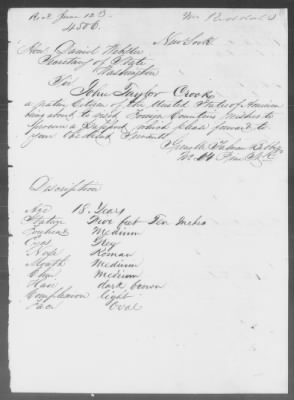 Recd June 12
4506
New York
Hon Daniel Webster
Secretary of State
Washington
Sir
John Taylor Crook
a native Citizen of the United States of America
being about to visit Foreign Countries wishes to
procure a Passport which please forward to
your Obedient Servant
No. 14 Pine St
Description
Age 18 Years
Stature Five feet Ten inches
Forehead Medium
Eyes Grey
Nose Roman
Mouth Medium
Chin Medium
Hair dark brown
Complexion light
Face Oval